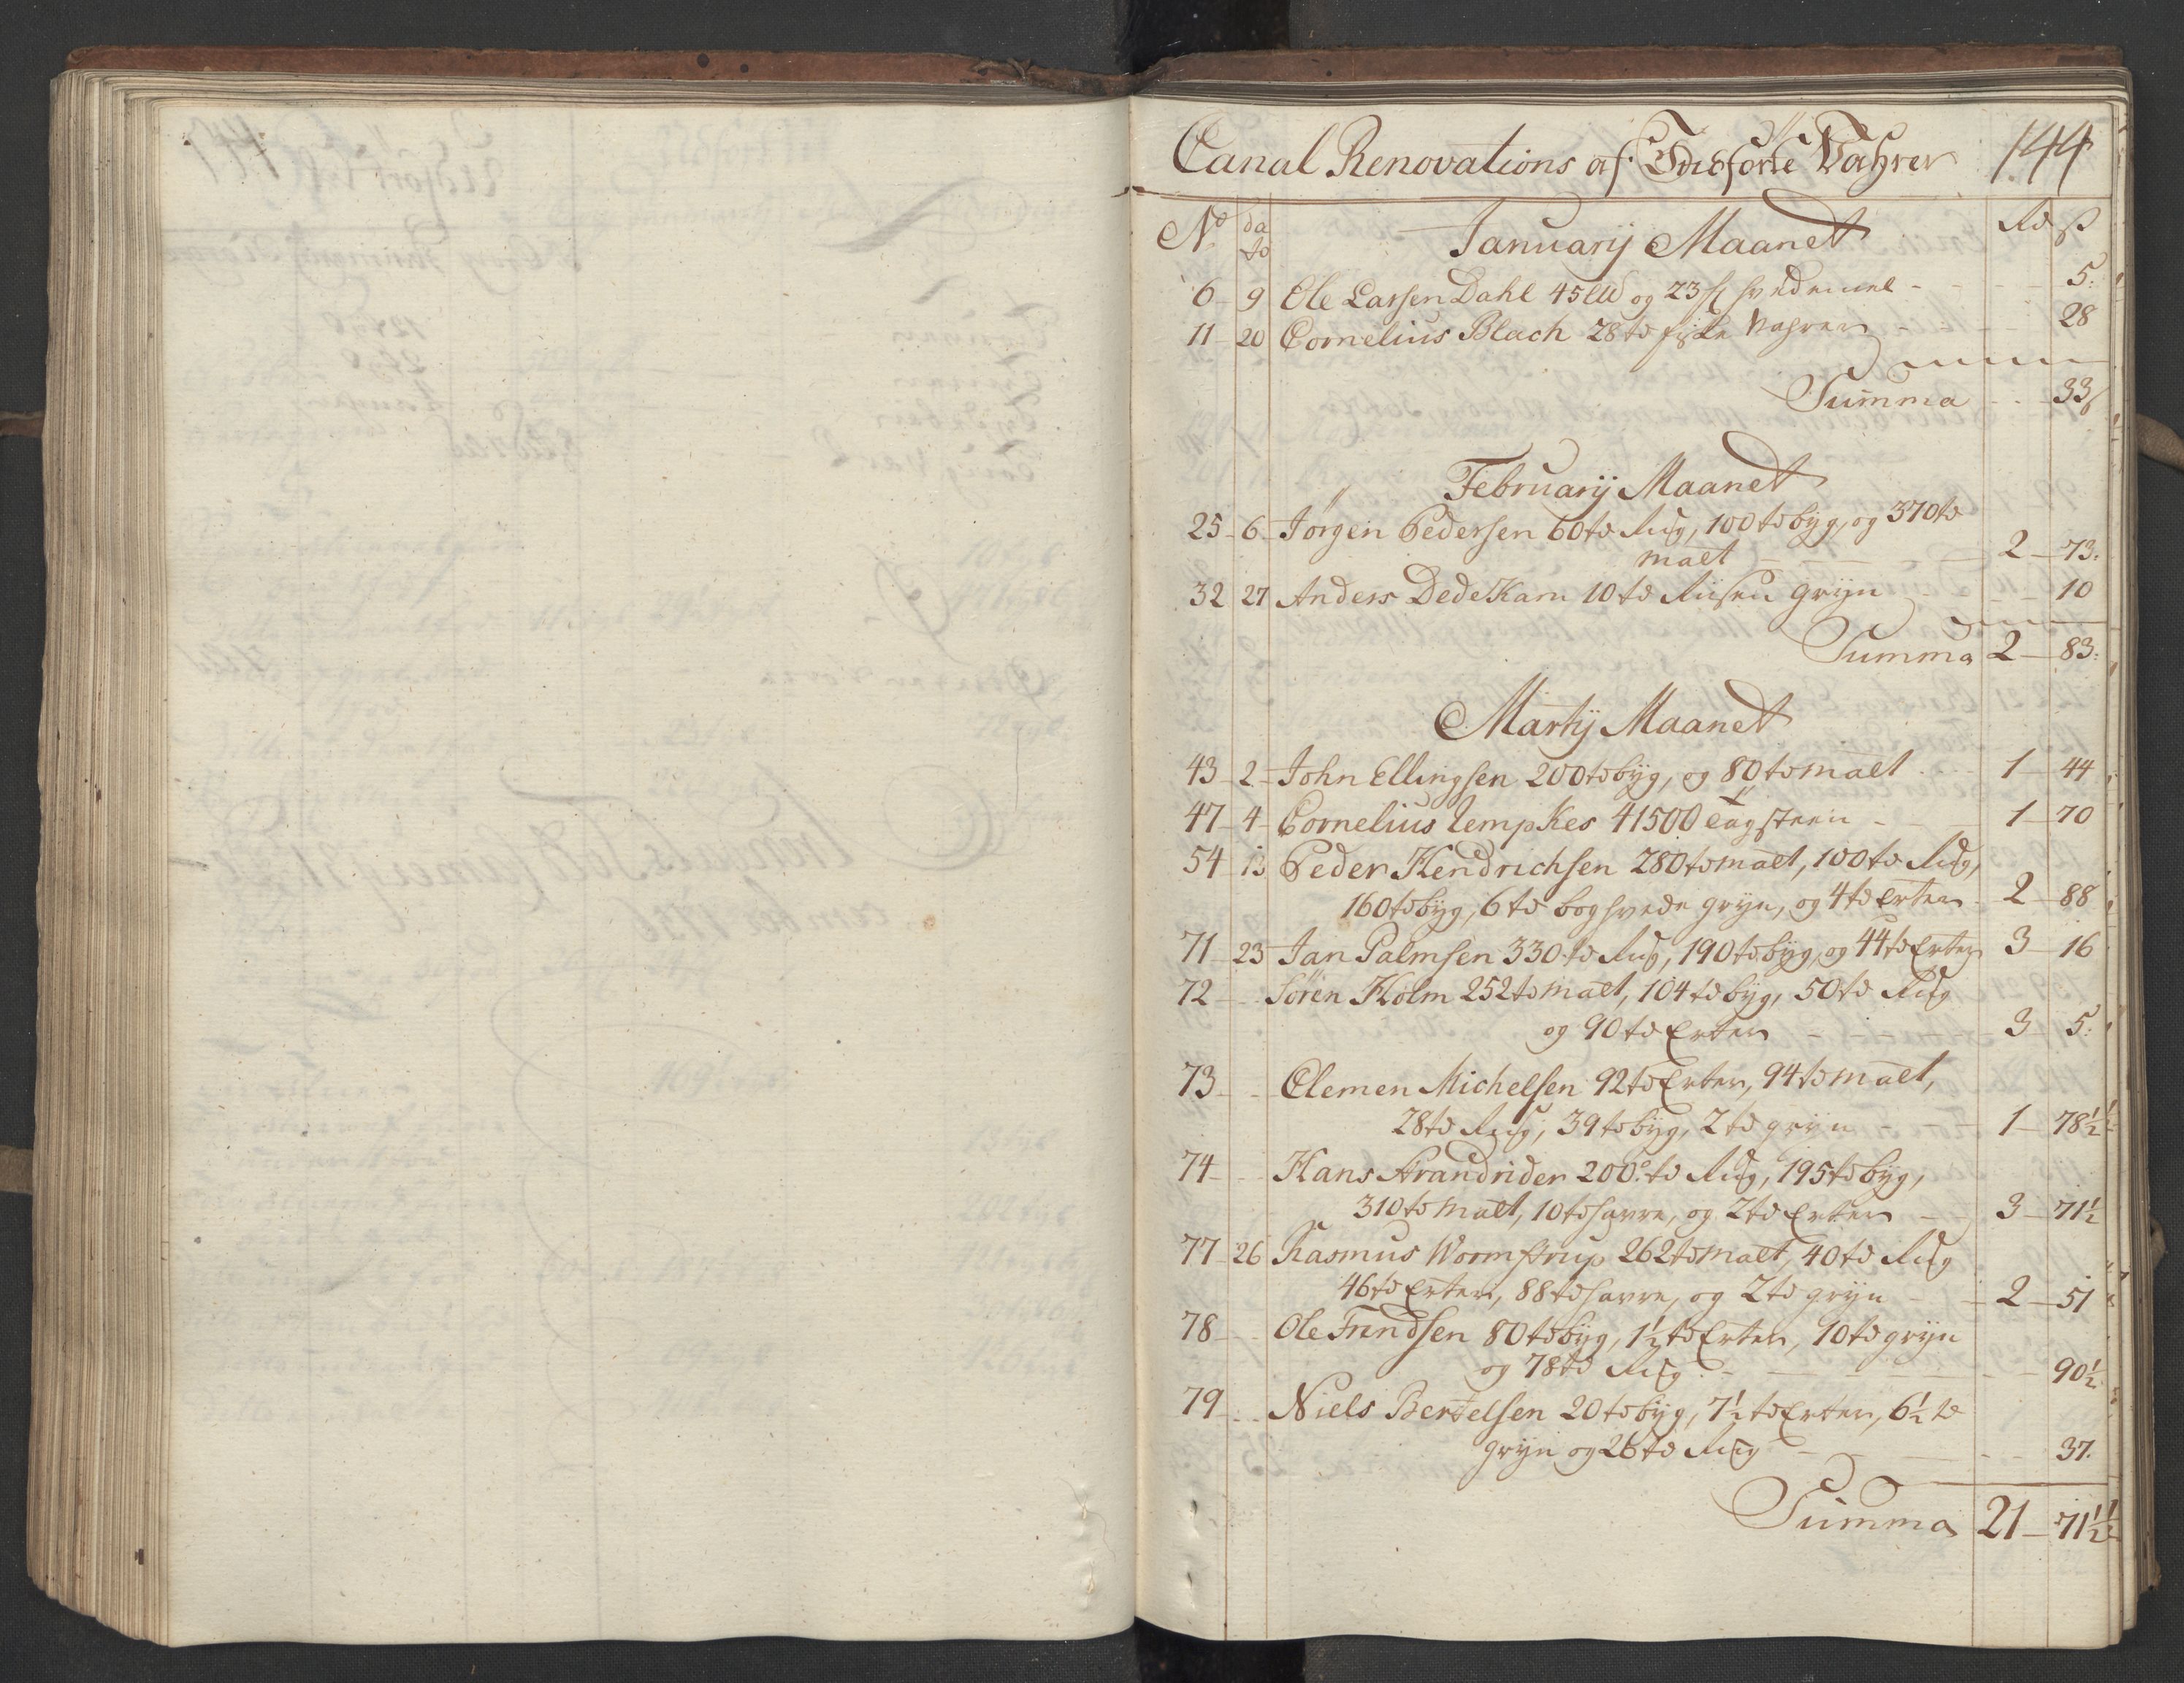 Canal Renovations af Indførte Vahrer 144
No dato Januarij Maanet Rd ß
6 9 Ole Larsen Dahl 45 og 23 hvedemeel 5
11 20 Cornelius Blach 28 td fiske Vahrer 28
Summa 33ß
Februarij Maanet
25 6 Jørgen Pedersen 60 td Rug, 100 td byg, og 370 td
malt 2 73
32 27 Anders Dedekam 10 td gryn 10
Summa 2 83
Martij Maanet
43 2 John Ellingsen 200 td byg, og 80 td malt 1 44
47 4 Cornelius Lempkes 41500 tagsteen 1 70
54 13 Peder Hendrichsen 280 td malt, 100 td Rug,
160 td byg, 6 td boghvede gryn, og 4 td Erter 2 88
71 23 Jan Palmsen 330 td Rug, 190 td byg, og 44 td Erter 3 16
72 Søren Holm 252 td malt, 104 td byg, 50 td Rug
og 90 td Erter 3 5
73 Clemen Michelsen 92 td Erter, 94 td malt,
28 td Rug, 39 td byg, 2 td gryn 1 78½
74 Hans Strandrider 200 td Rug, 195 td byg,
310 td malt, 10 td havre, og 2 td Erter 3 71½
77 26 Rasmus Wormstrup 262 td malt, 40 td Rug
46 td Erter, 88 td havre, og 2 td gryn 2 51
78 Ole Frendsen 80 td byg, 1½ td Erter, 10 td gryn
og 78 td Rug 90½
79 Niels Bertelsen 20 td byg, 7½ td Erter, 6½ td
gryn og 26 td Rug 37
Summa 21 71½